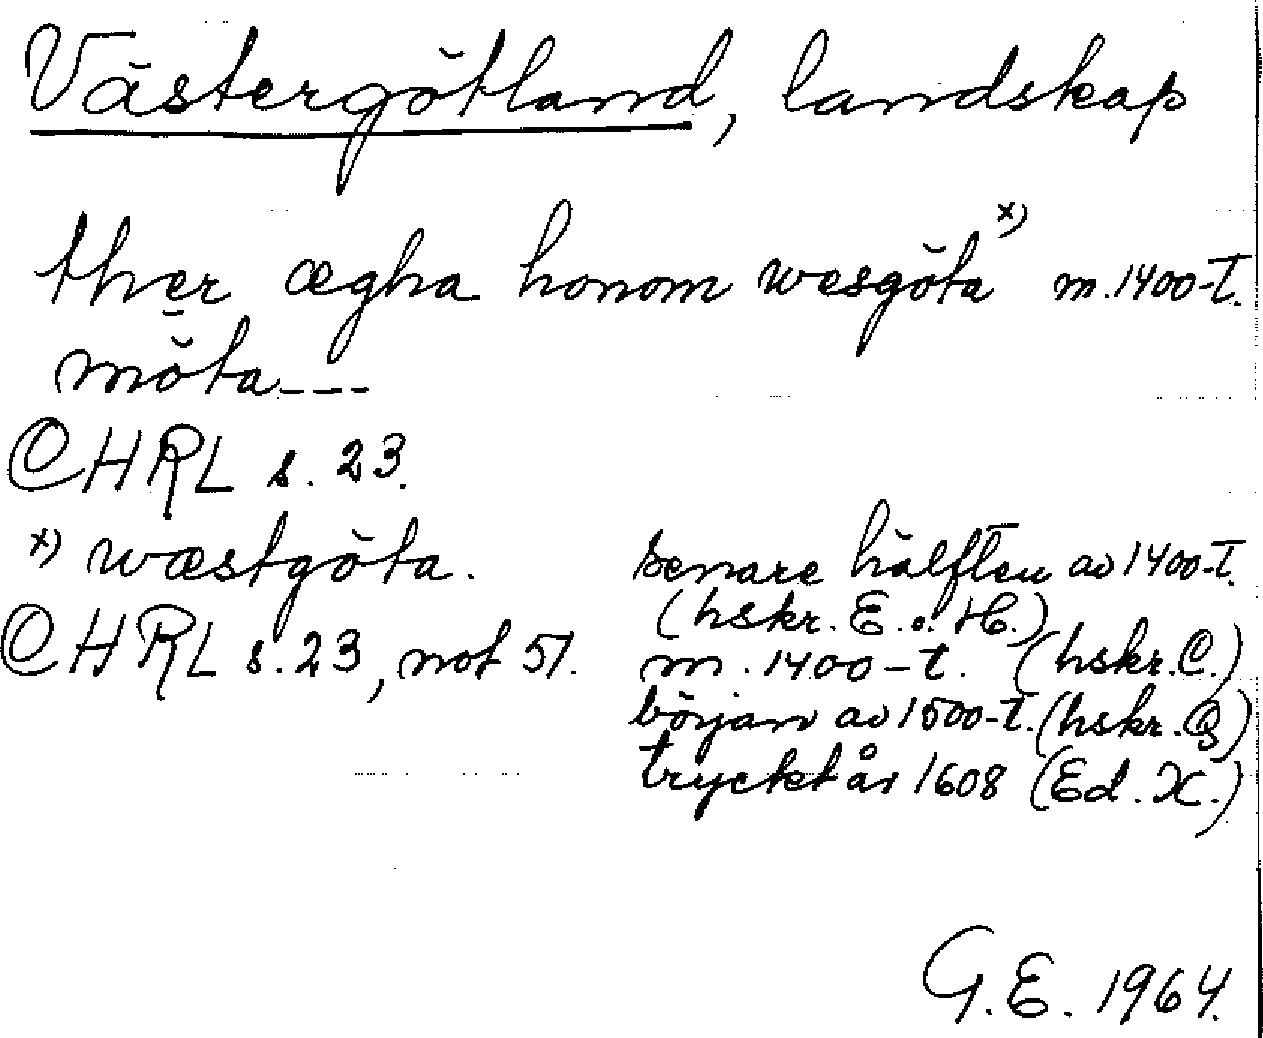 Västergötland, landskap
ther ægha honom wesgöta x) m. 1400-t.
möta---
CHRL s. 23.
x) wæstgöta. senare hälften av 1400-t.
(hskr. E. o. H.)
CHRL s. 23, not 51. m. 1400-t. (hskr. C.)
början av 1500-t. (hskr. Q)
tryckt år 1608 (Ed. X.)
G.E. 1964.